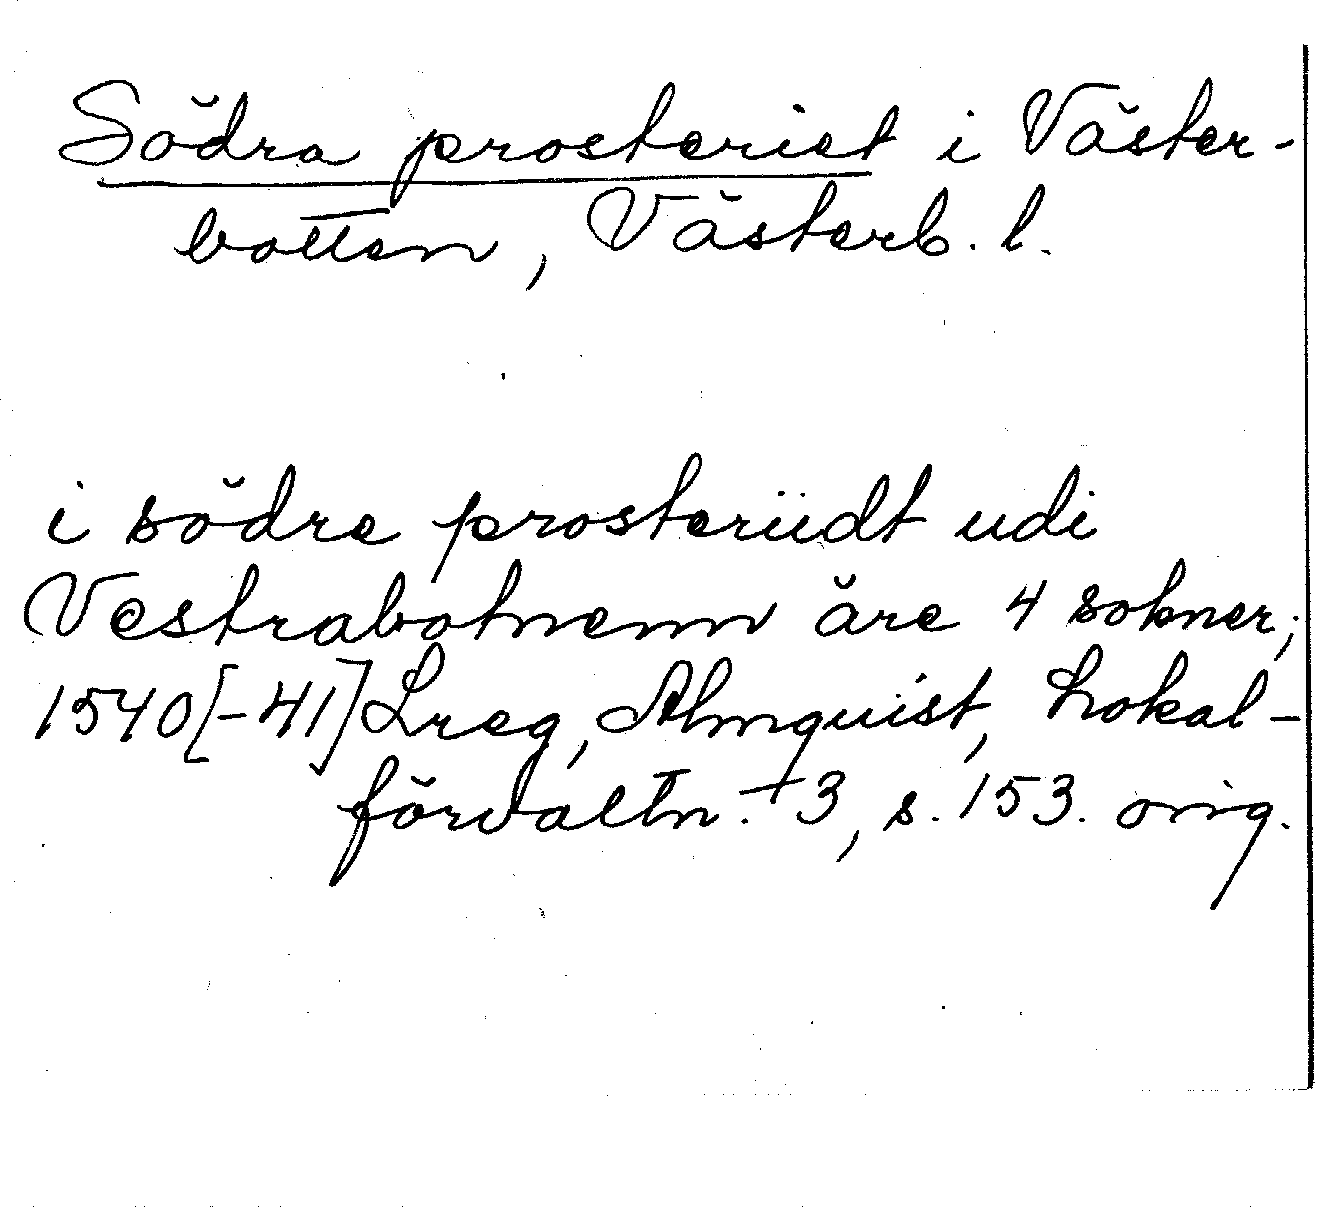 Södra prosteriet i Väster-
botten, Västerb. l.
i södre prosteriidt udi
Vestrabotnenn äre 4 sokner;
1540[-41] Lreg, Almquist, Lokal-
förvaltn. + 3, s. 153. orig.